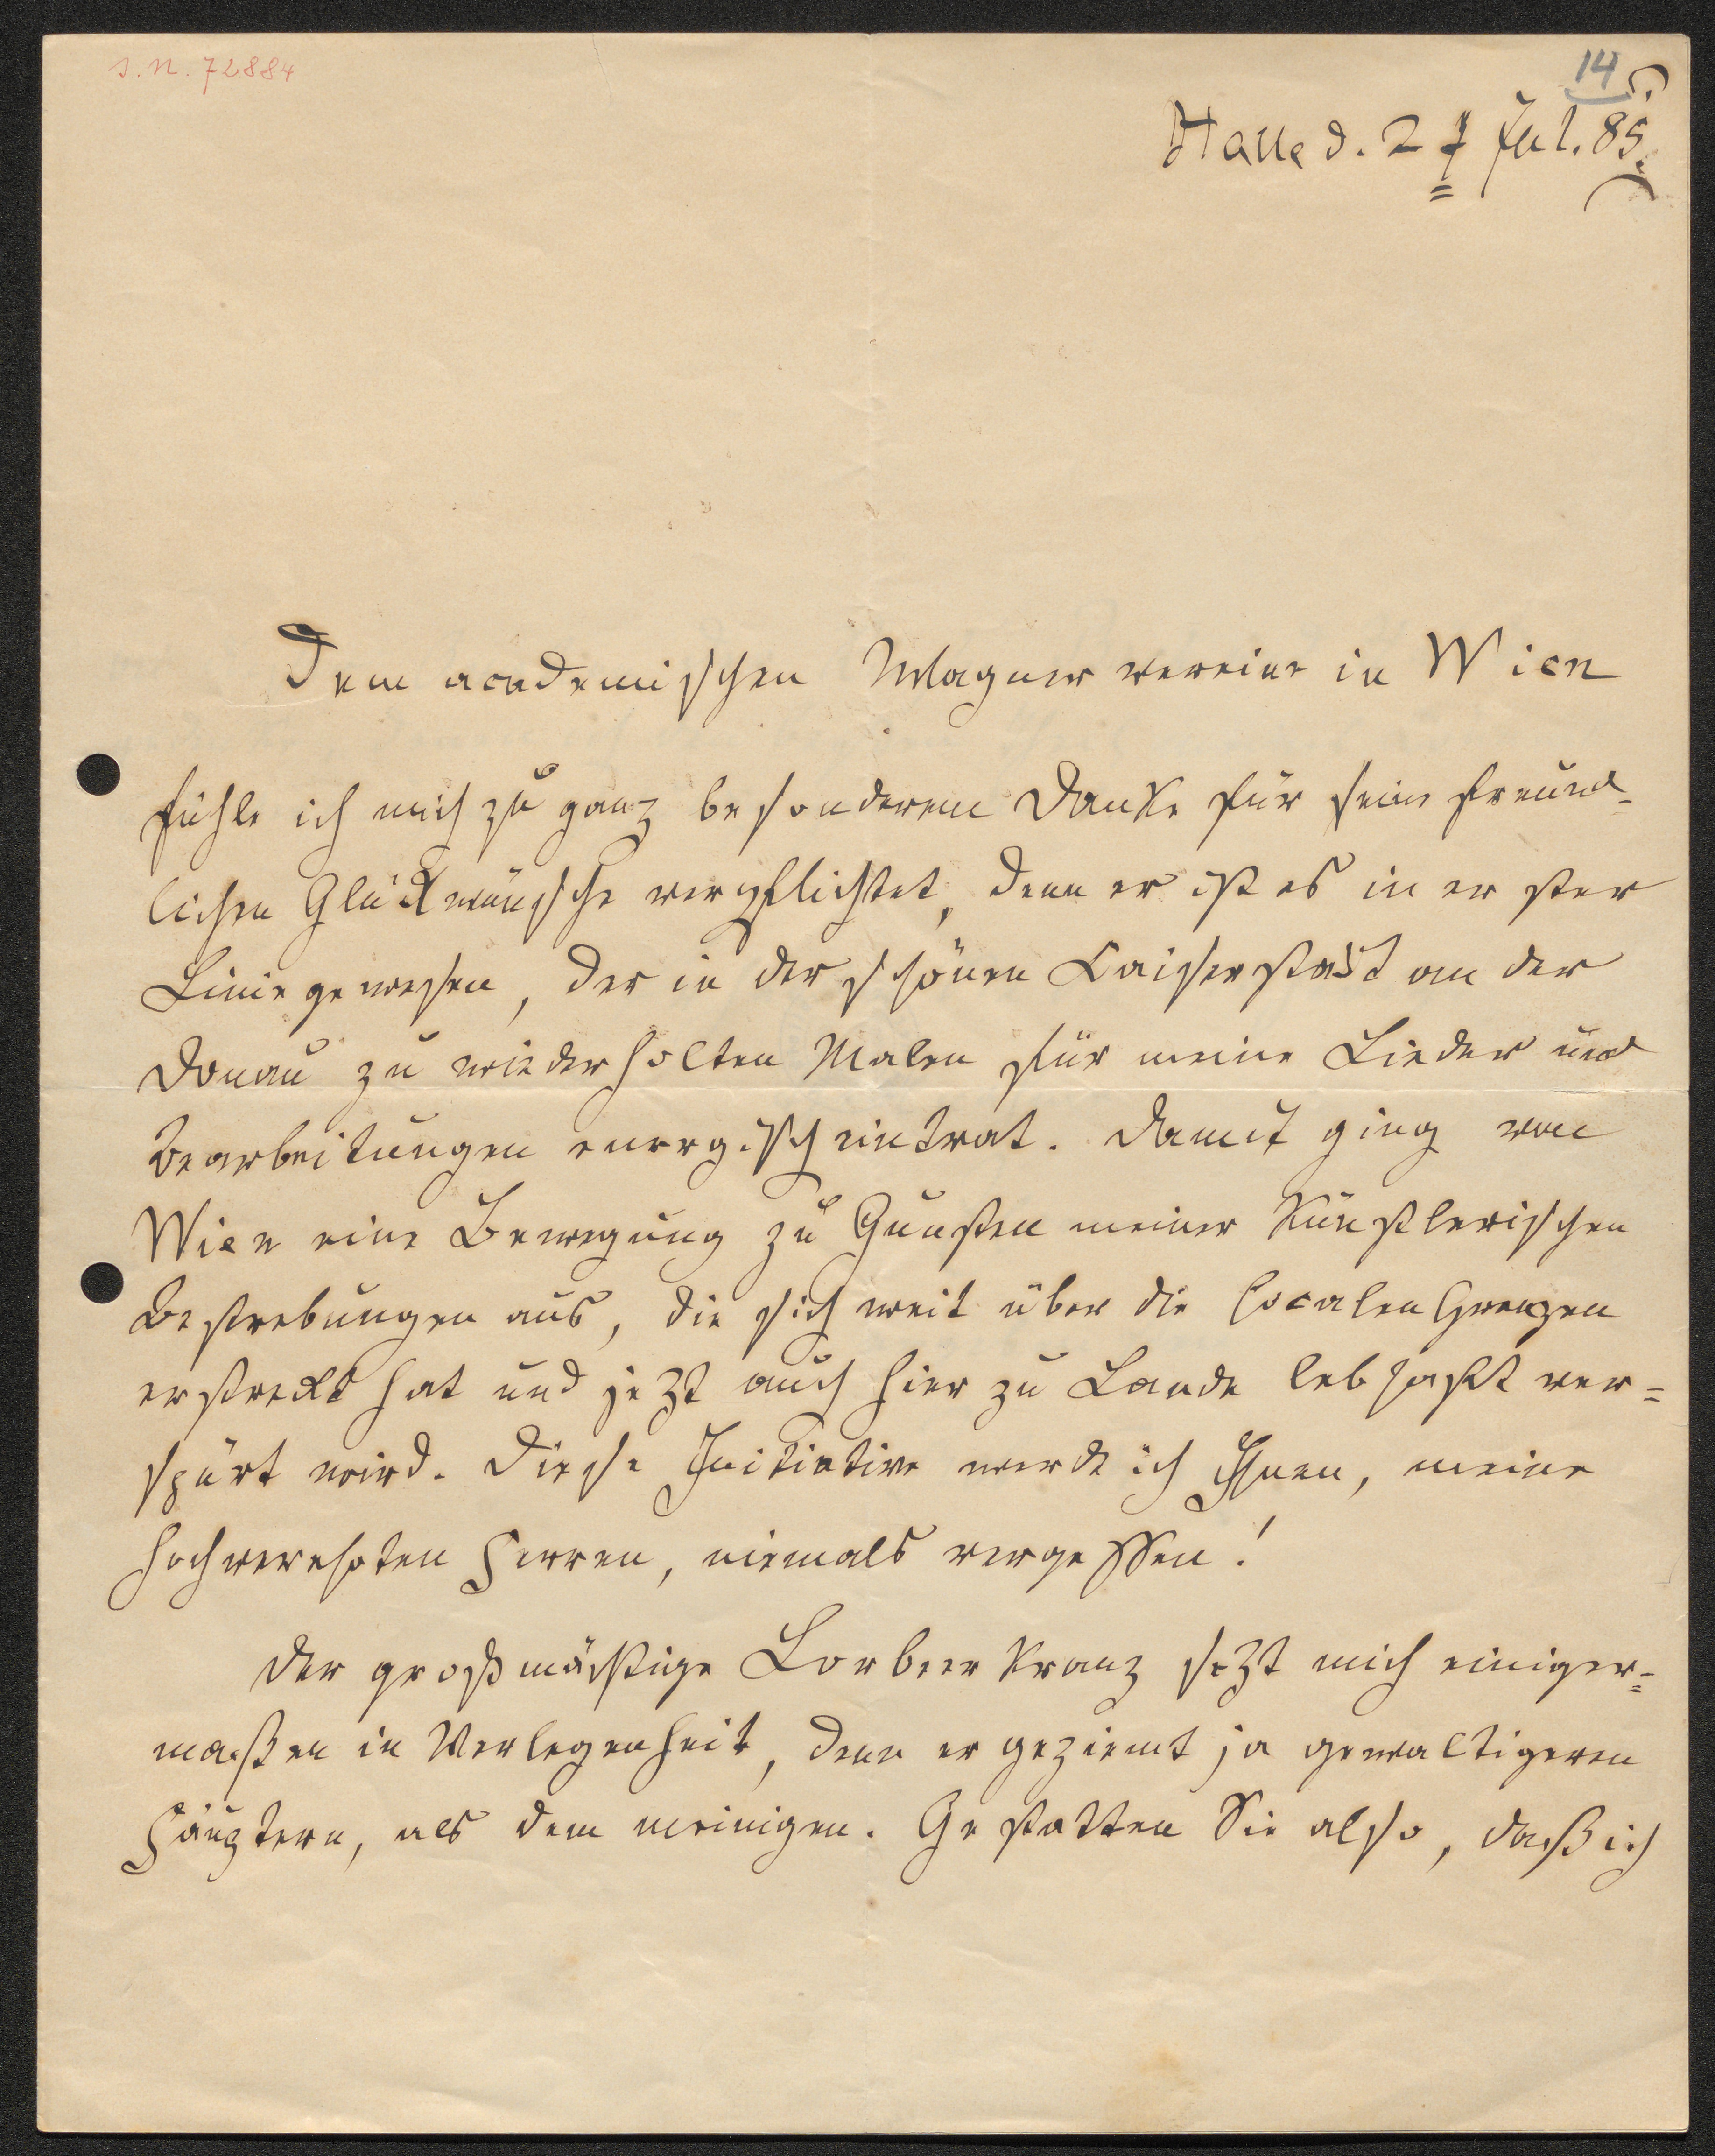 I. N. 72884
14
Halle d. 27 Jul. 85.
Dem academischen Wagnervereine in Wien
fühle ich mich zu ganz besonderem Danke für seine freund-
lichen Glückwünsche verpflichtet, denn er ist es in erster
Linie gewesen, der in der schönen Kaiserstadt an der
Donau zu wiederholten Malen für meine Lieder und
Bearbeitungen energisch eintrat. Damit ging von
Wien eine Bewegung zu Gunsten meiner künstlerischen
Bestrebungen aus, die sich weit über die localen Grenzen
erstreckt hat und jetzt auch hier zu Lande lebhaft ver=
spürt wird. Diese Initiative werde ich Ihnen, meine
hochverehrten Herren, niemals vergessen!
Der großmächtige Lorbeerkranz setzt mich einiger=
maßen in Verlegenheit, denn er geziemt ja gewaltigeren
Häuptern, als dem meinigen. Gestatten Sie also, daß ich